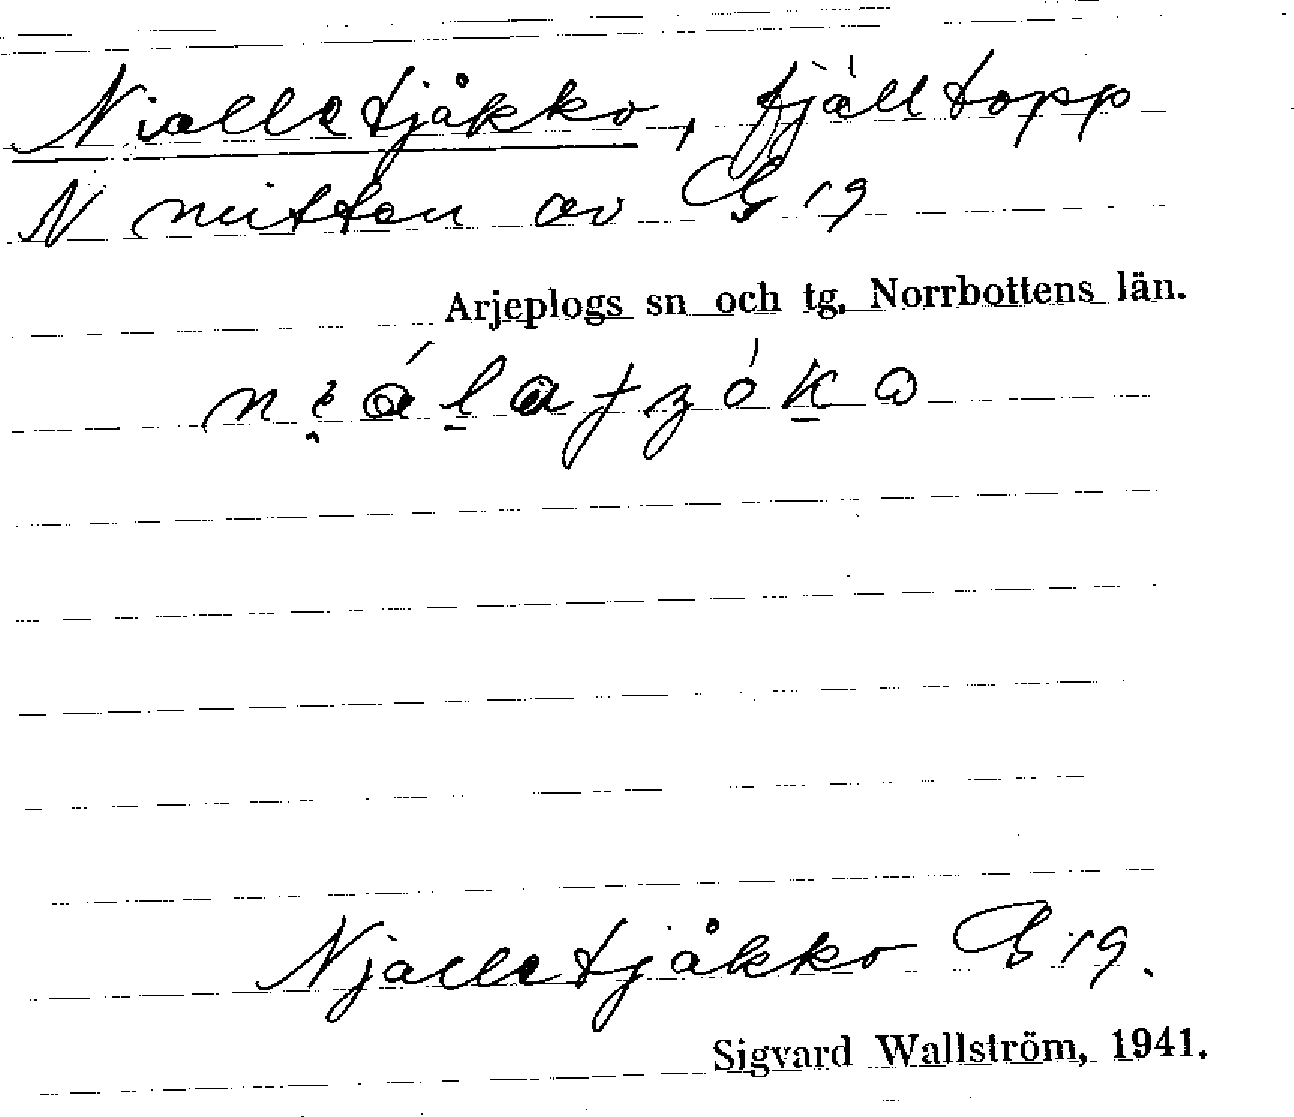 Nialletjåkko, fjälltopp
N mitten av G 19
Arjeplogs sn och tg. Norrbottens län.
Njalletjåkko G 19.
Sigvard Wallström, 1941.